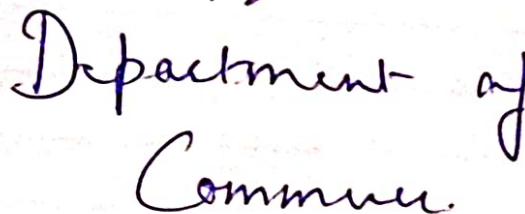 Department of
Commerce.